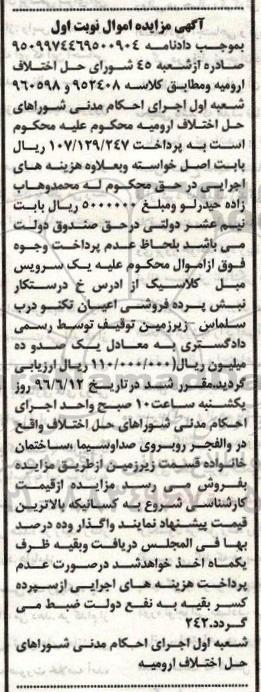 آگهی مزایده اموال نوبت اول
بموجب دادنامه ۹۵۰۹۹۷۴۴۶۹۵۰۰۹۰۴
صادره ازشعبه ۴۵ شورای حل اختلاف
ارومیه ومطابق کلاسه ۹۵۲۴۰۸ و ۹۶۰۵۹۸
شعبه اول اجرای احکام مدنی شوراهای
حل اختلاف ارومیه محکوم علیه محکوم
است به پرداخت ۱۰۷/۱۲۹/۲۴۷ ریال
بابت اصل خواسته وبعلاوه هزینه های
اجرایی در حق محکوم له محمدوهاب
زاده حیدرلو ومبلغ ۵۰۰۰۰۰۰ ریال بابت
نیم عشر دولتی درحق صندوق دولت
می باشد بلحاظ عدم پرداخت وجوه
فوق ازاموال محکوم علیه یک سرویس
مبل کلاسیک از ادرس خ درستکار
نبش پرده فروشی اعیان تکنو درب
سلماس -زیرزمین توقیف توسط رسمی
دادگستری به معادل یک صدو ده
میلیون ریال(۱۱۰/۰۰۰/۰۰۰) ریال ارزیابی
گردید.مقرر شد در تاریخ ۹۶/۶/۱۲ روز
یکشنبه ساعت۱۰ صبح واحد اجرای
احکام مدنی شوراهای حل اختلاف واقع
در والفجر روبروی صداوسیما ،ساختمان
خانواده قسمت زیرزمین ازطریق مزایده
بفروش می رسد مزایده ازقیمت
کارشناسی شروع به کسانیکه بالاترین
قیمت پیشنهاد نمایند واگذار وده درصد
بها فی المجلس دریافت وبقیه ظرف
یکماه اخذ خواهدشد درصورت عدم
پرداخت هزینه های اجرایی ازسپرده
کسر بقیه به نفع دولت ضبط می
گردد.۲۴۲
شعبه اول اجرای احکام مدنی شوراهای
حل اختلاف ارومیه